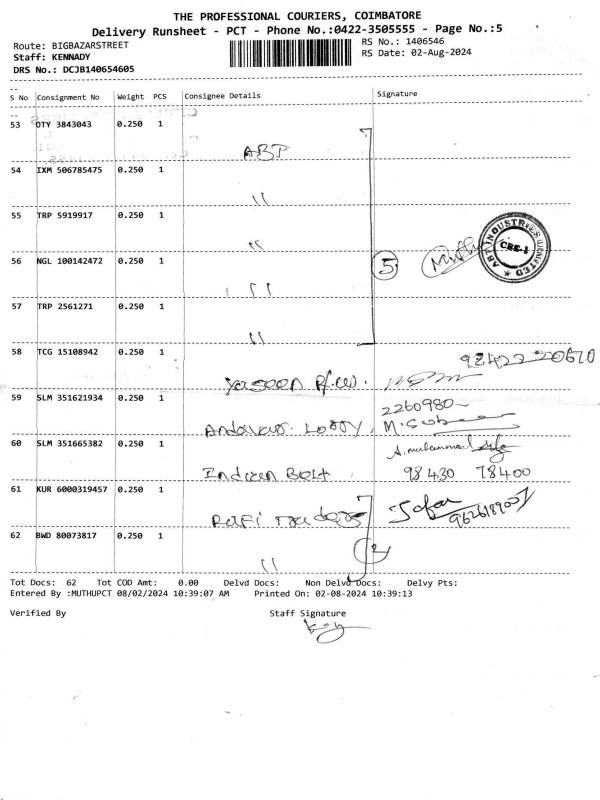 THE PROFESSIONAL COURIERS, COIMBATORE
Delivery Runsheet - PCT - Phone No.:0422-3505555 - Page No.:5
Route: BIGBAZARSTREET
RS No.: 1406546
Staff: KENNADY
RS Date: 02-Aug-2024
DRS No.: DCJB140654605
S No Consignment No Weight PCS Consignee Details Signature
53 OTY 3843043 0.250 1
ABT
54 IXM 506785475 0.250 1
"
55 TRP 5919917 0.250 1
"
ABT INDUSTRIES LIMITED
CBE-1
56 NGL 100142472 0.250 1
" 5
57 TRP 2561271 0.250 1
"
58 TCG 15108942 0.250 1
98422 20670
Yaseen
59 SLM 351621934 0.250 1
2260980
Andavar Lorry M.
60 SLM 351665382 0.250 1
Indian Bolt 98430 78400
61 KUR 6000319457 0.250 1
Rafi Traders Jafar
62 BWD 80073817 0.250 1
" 2
Tot Docs: 62 Tot COD Amt: 0.00 Delvd Docs: Non Delvd Docs: Delvy Pts:
Entered By :MUTHUPCT 08/02/2024 10:39:07 AM Printed On: 02-08-2024 10:39:13
Verified By Staff Signature